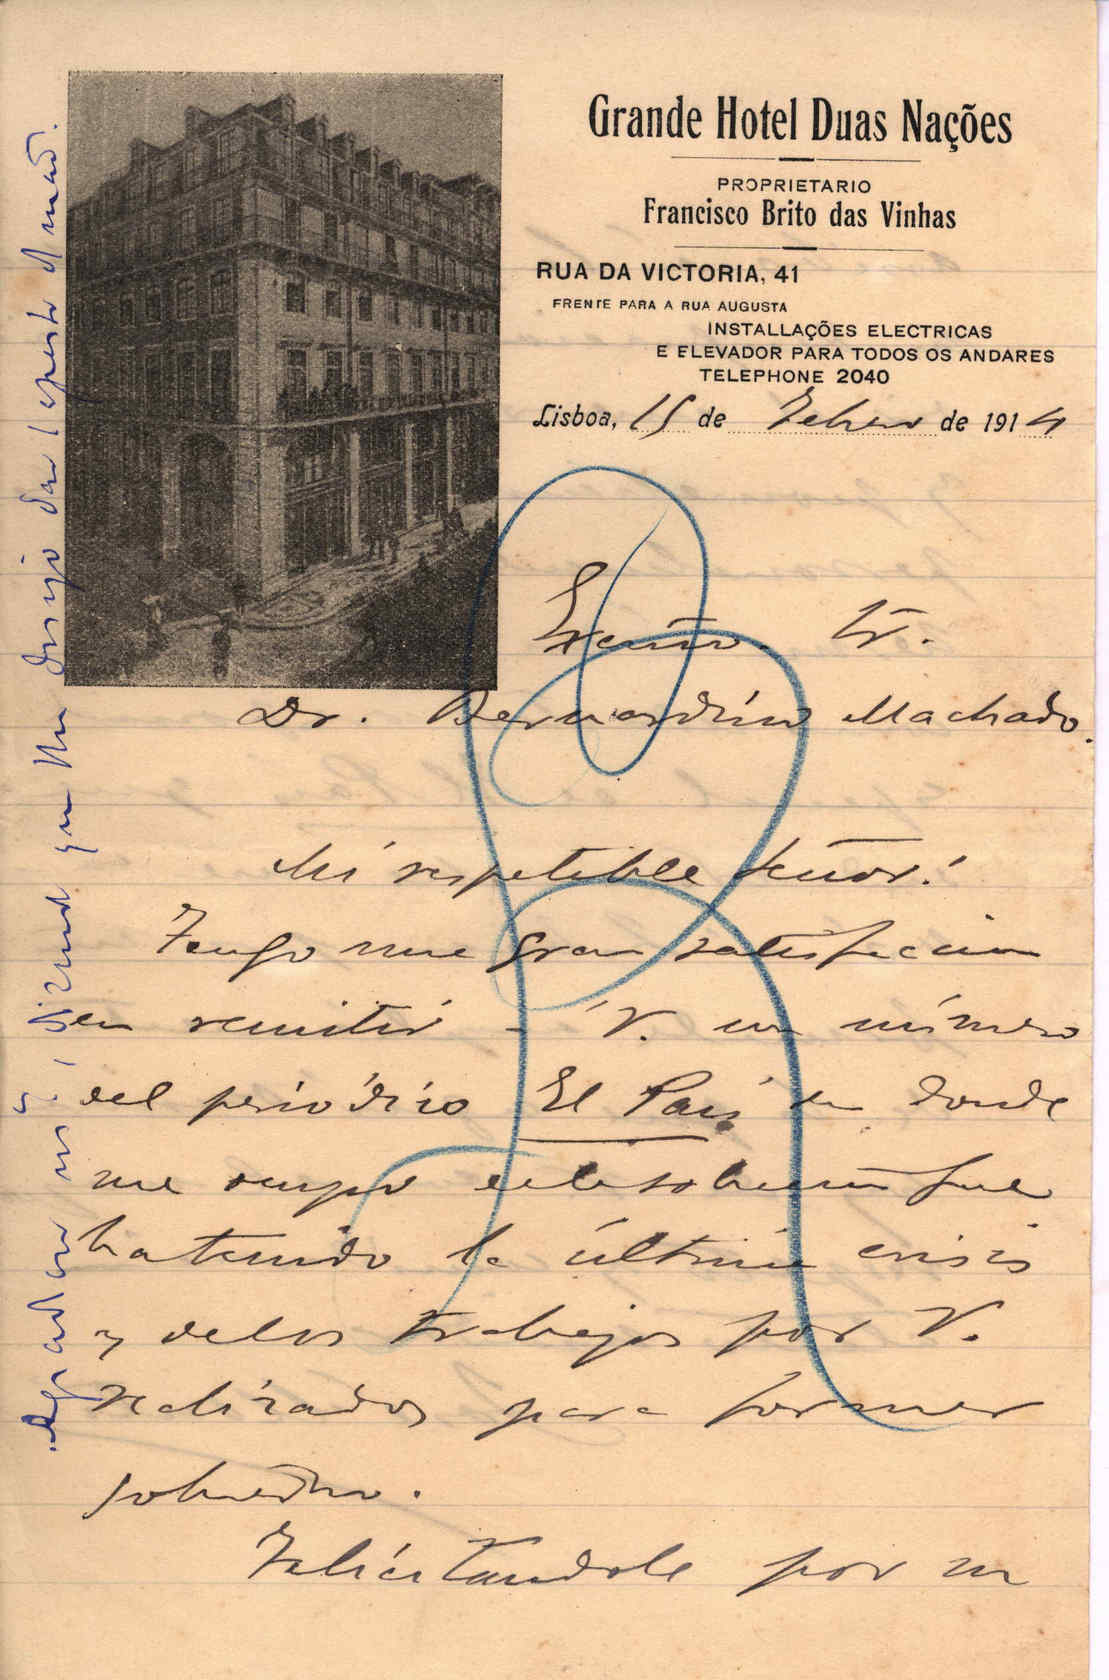 Grande Hotel Duas Nações
PROPRIETARIO
Francisco Brito das Vinhas
RUA DA VICTORIA, 41
FRENTE PARA A RUA AUGUSTA
INSTALLAÇÕES ELECTRICAS
E ELEVADOR PARA TODOS OS ANDARES
TELEPHONE 2040
Lisboa, 15 de Febrero de 1914
Excmo. Sr.
Dr. Bernardino Machado.
Mi respetable Señor:
Tengo una gran satisfaccion
en remitir á V. un número
del periódico El País en donde
me ocupo de la solucion que
ha tenido la última crisis
y de los trabajos por V.
realizados para formar
gobierno.
Felicitandole por su
que lhe desejo dar 1 aperto de mão.